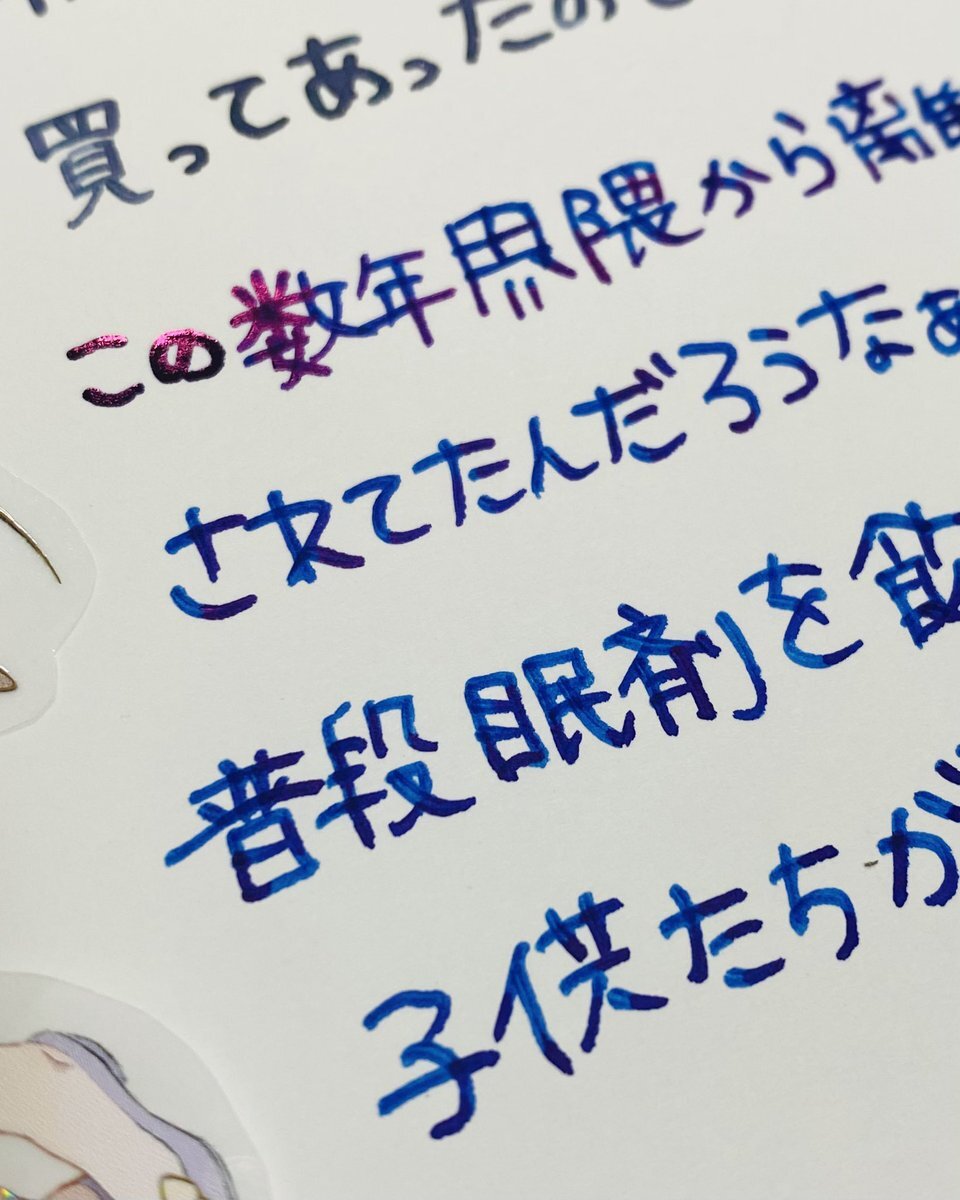 買ってあったの
この数年界隈から離
されてたんだろうなあ
普段眠剤を飲
子供たちが